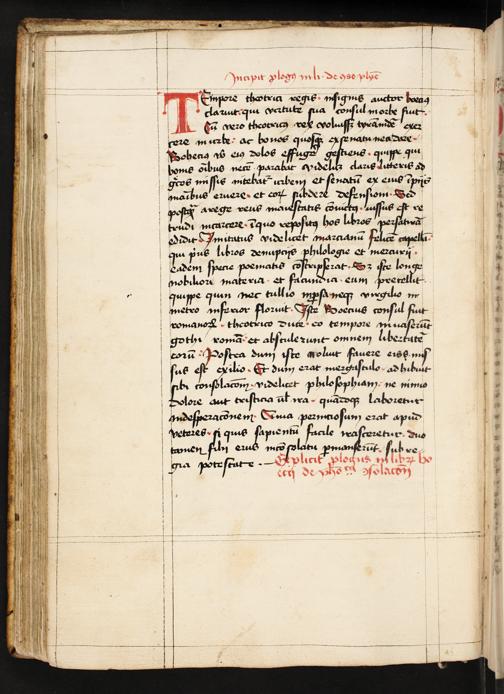 Incipit plogꝰ in li· de ↄso· phye
Tempore theotrici regis· insignis auctor boeciꝰ
claruit· qui virtute sua consul in vrbe fuit·
Cū vero theotricꝰ rex voluiss; tyrāndē exer
cere in vrbe· ac bonos quosq; ex senatu necare·
Boheciꝰ vº eiꝰ dolos effuge gestiens· quippe qui
bonis oībus necē parabat videlicꝫ clā litteris ad
gcos missis nitebat vrbem et senatū ex eiꝰ īpiis
manibus eruere· et eoꝝ subdere defensioni· Sed
postq̄ a rege reus maiestatis cōuictꝰ· iussus est re
trudi in carcere· ī quo repositꝰ hos libros persatirā
edidit· Imitatus videlicet marcianū felicē capellā·
qui pⁱus libros de nuptijs philologie et mercurij
eadem specie poematis cōscripserat· Sꝫ iste longe
nobiliore materia· et facundia eum precellit
quippe quin nec tullio in psa neq; virgilio in
metro inferior floruit· Iste Boecius consul fuit
romanoꝝ· theotrico duce· eo tempore inuaserūt
gothi romā· et abstulerunt omnem libertatē
eorū· Postea dum iste voluit fauere eis· mis
sus est exilio· Et dum erat in ergastulo· adhibuit
sibi consolacōem· videlicet philosophiam· ne nimio
dolore aut tristicia ul' ira· quandoq; laboretur
in desperacōnem· Quia perniciosum erat apud
veteres· si quis sapientū facile irasceretur· duo
tamen filij eius incōsolati pmanserūt· sub re
gia potestate·
Explicit plogus in librꝫ bo
ecij de phⁱe ↄsolacōn